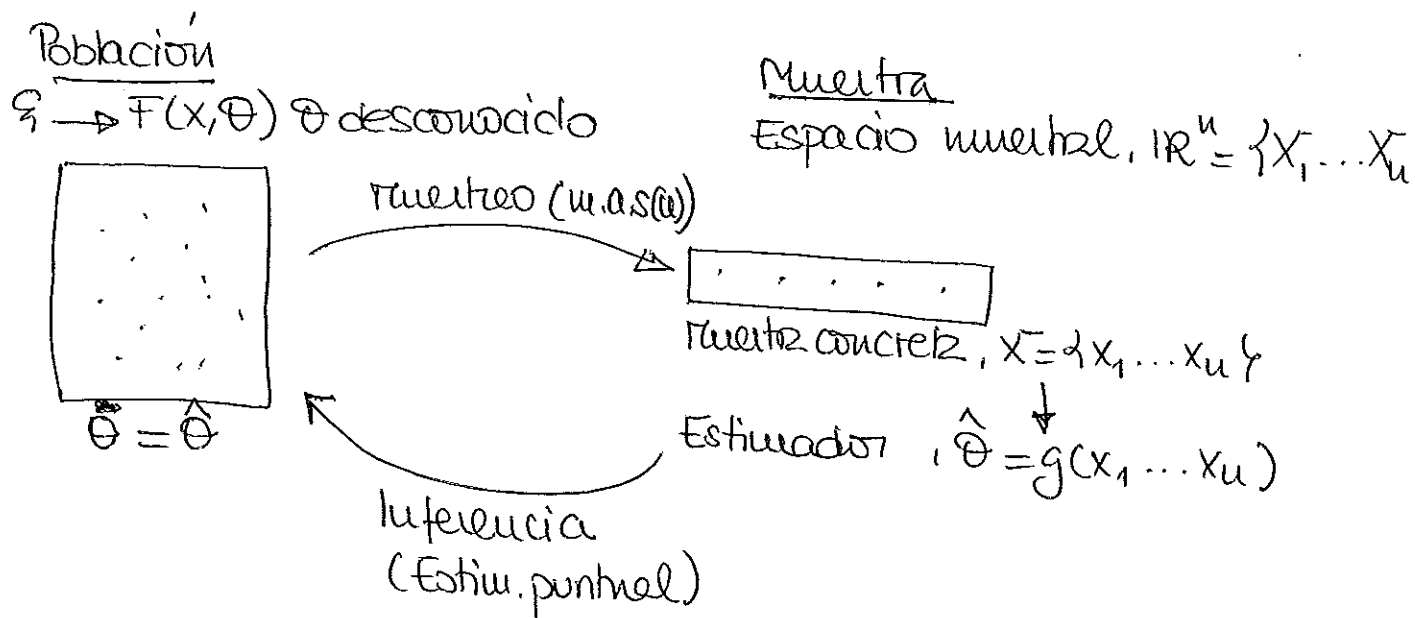 Población
ξ → F(x, θ) θ desconocido
Muestra
Espacio muestral, ℝⁿ = {X₁ ... Xₙ
muestreo (m.a.s(n))
muestra concreta, x̄ = {x₁ ... xₙ}
Estimador, θ̂ = g(x₁ ... xₙ)
θ = θ̂
Inferencia
(Estim. puntual)